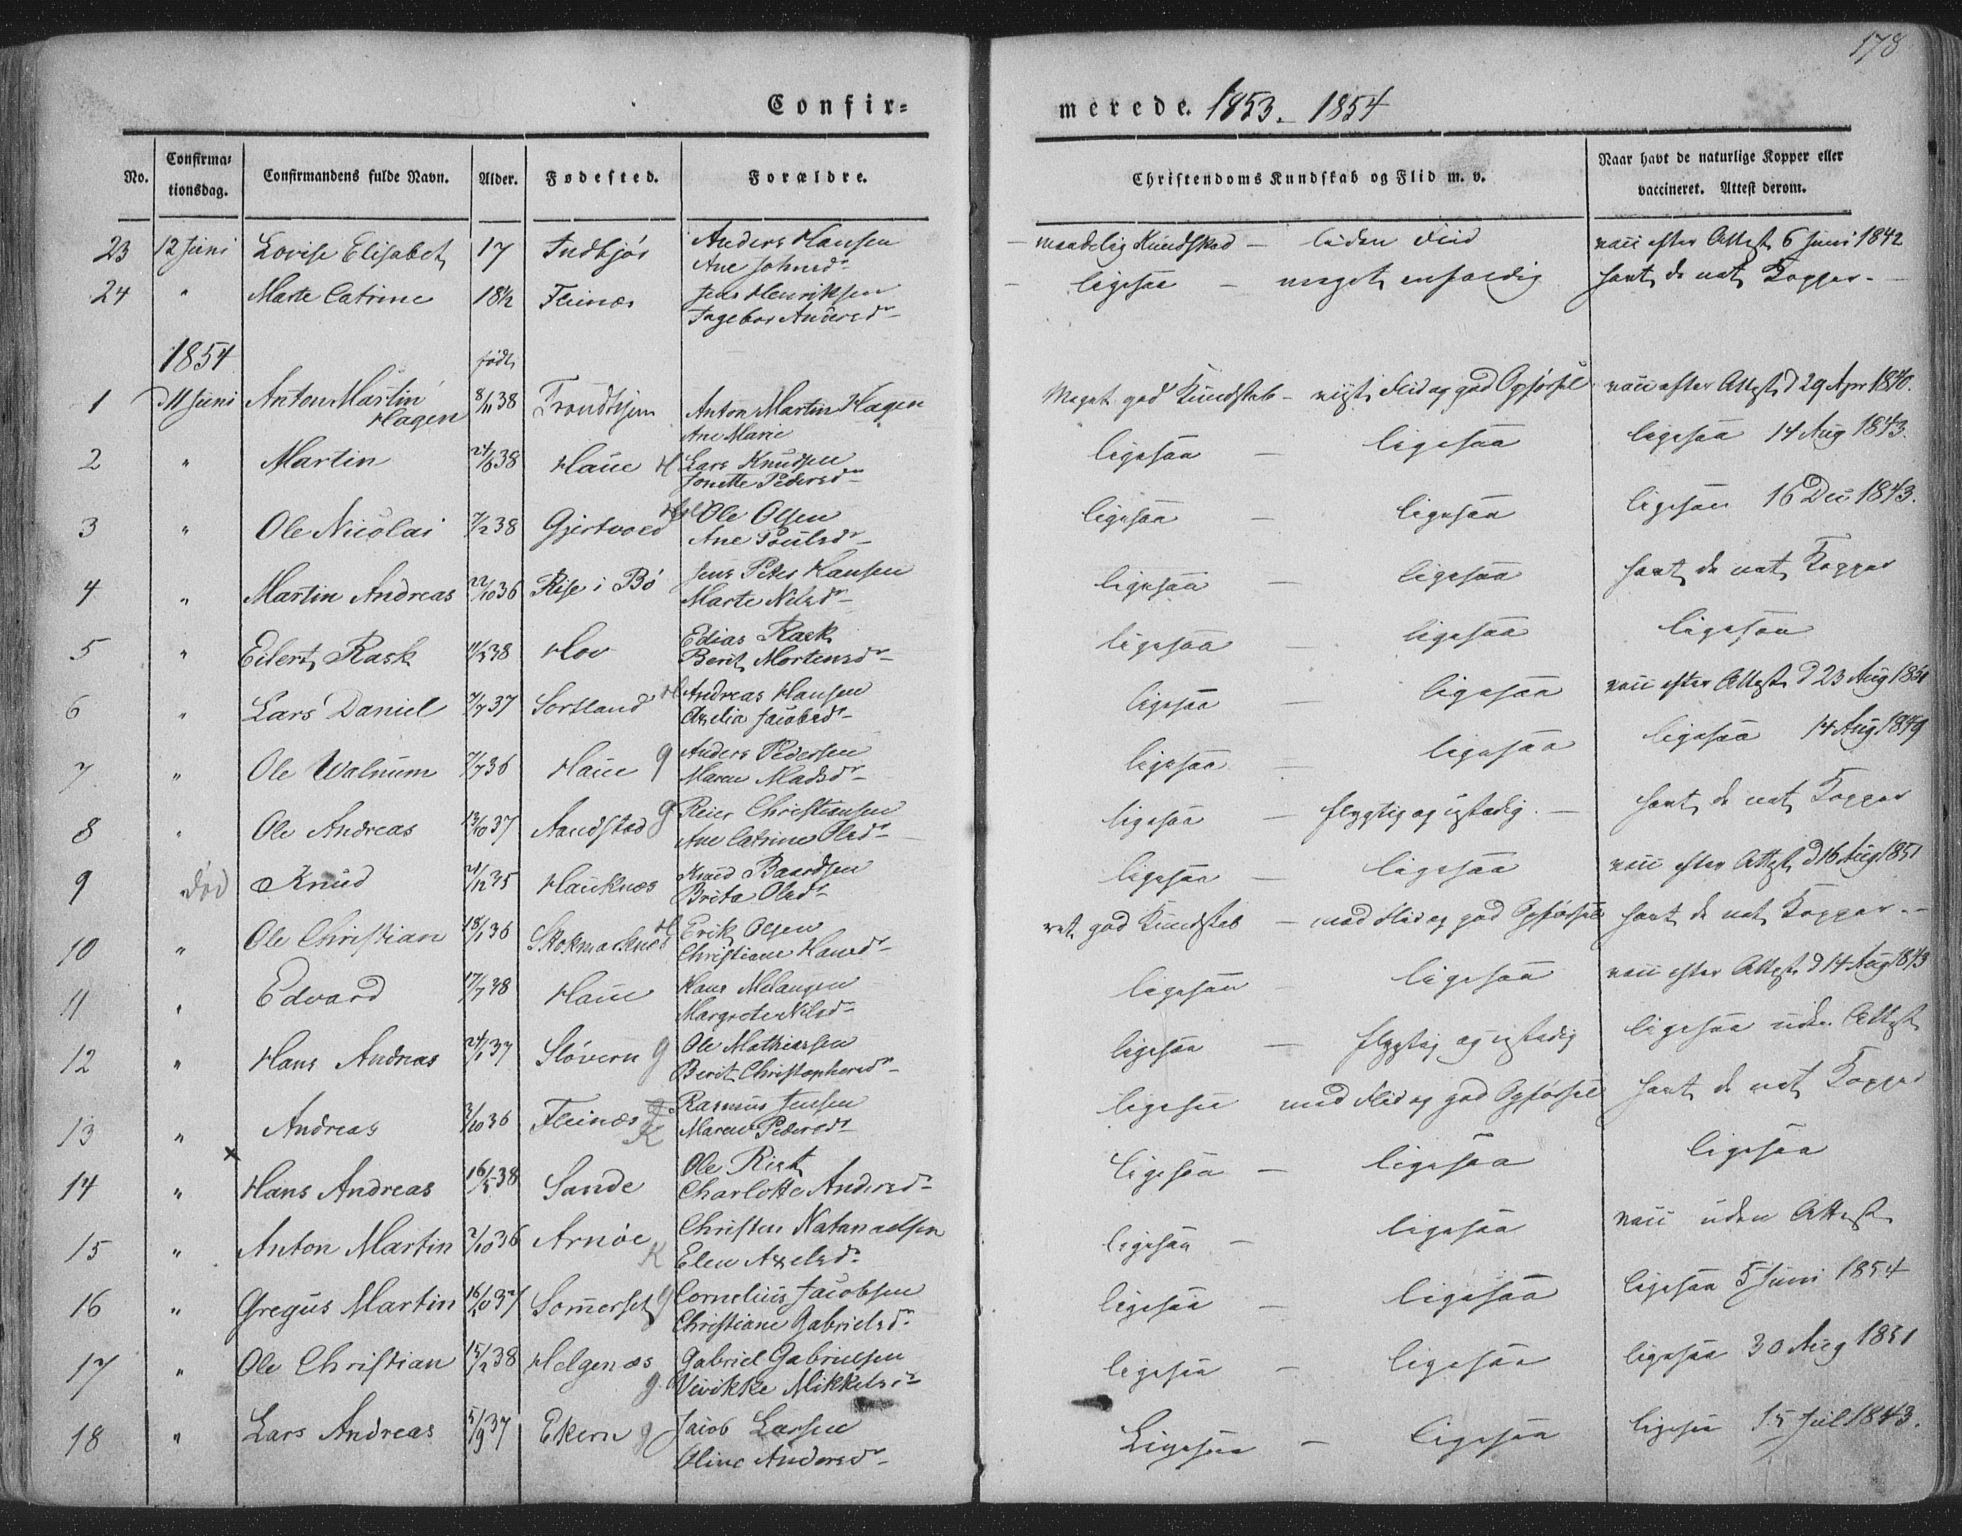 178
Confir=
merede. 1853. 1854
No. Confirma=tionsdag. Confirmandens fulde Navn. Alder. Fødested. Forældre. Christendoms Kundskab og Flid m. v. Naar havt de naturlige Kopper eller vaccineret. Attest derom.
23 12 Juni Lovise Elisabet 17 Indbjør Anders Hansen maadelig Kundskab – liden Flid vacc efter Attest 6 Juni 1842
Ane Johnsdr
24 " Marte Catrine 18½ Fleinæs Jens Henriksen ligesaa – meget enfoldig havt de nat Kopper
Ingebor Andersdr
1854 født
1 11 Juni Anton Martin Hagen 8/11 38 Trondhjem Anton Martin Hagen Meget god Kundskab – Flid og god Opførsel vacc efter Attest d 29 Apr 1840.
Ane Marie
2 " Martin 38 Haue H Lars Knudsen ligesaa – ligesaa ligesaa 14 Aug 1843.
Jonette Pedersdr
3 " Ole Nicolai 7/2 38 Gjertvold Ole Olsen ligesaa – ligesaa ligesaa 16 Dec 1843.
Ane Poulsdr
4 " Martin Andreas 22/10 36 Rise i Bø Jens Peter Hansen ligesaa – ligesaa havt de nat Kopper
Marte Nelsdr
5 " Eilert Rask 38 Hov Edias Rask ligesaa – ligesaa ligesaa
Berit Mortensdr
6 " Lars Daniel 7/7 37 Sortland H Andreas Hansen ligesaa – ligesaa vacc efter Attest d 23 Aug 1851
Axelia Jacobsdr
7 " Ole Walnum 7/7 36 Haue g Anders Pedersen ligesaa – ligesaa ligesaa 14 Aug 1849
Maren Madsdr
8 " Ole Andreas 13/10 37 Aandstad g Reier Christiansen ligesaa – flygtig og ustadig – havt de nat Kopper
Ane Catrine Olsdr
9 død Knud 21/12 35 Hauknæs Knud Baardsen ligesaa – ligesaa vacc efter Attest d 16 Aug 1851
Brita Olsdr
10 " Ole Christian 18/1 36 Stokmarknæs H Erik Olsen ret god Kundskab – med Flid og god Opførsel havt de nat Kopper –
Christiane Hansdr
11 " Edvard 17/7 38 Haue Hans Melangen ligesaa – ligesaa vacc efter Attest d 14 Aug 1843
Margrete Nilsdr
12 " Hans Andreas 24/1 37 Sløvern g Ole Mathiassen ligesaa – flygtig og ustadig ligesaa uden Attest
Berit Christophersdr
13 " Andreas 3/10 36 Fleinæs K Rasmus Jensen ligesaa med Flid og god Opførsel havt de nat Kopper
Maren Pedersdr
x
14 " Hans Andreas 16/5 38 Sande Ole Rist ligesaa – ligesaa ligesaa
Charlotte Andersdr
15 " Anton Martin 2/10 36 Arnøe K Christen Natanaelsen ligesaa – ligesaa vacc uden Attest
Elen Axelsdr
16 " Gregus Martin 16/10 37 Somerset g Cornelius Jacobsen ligesaa – ligesaa ligesaa 5 Juni 1854
Christiane Gabrielsdr
17 " Ole Christian 15/2 38 Helgenæs g. Gabriel Gabrielsen ligesaa – ligesaa ligesaa 30 Aug 1851
Vivikke Mikkelsdr
18 " Lars Andreas 5/9 37 Ekern g Jacob Larsen Ligesaa – ligesaa ligesaa 15 Jul 1843.
Oline Andersdr